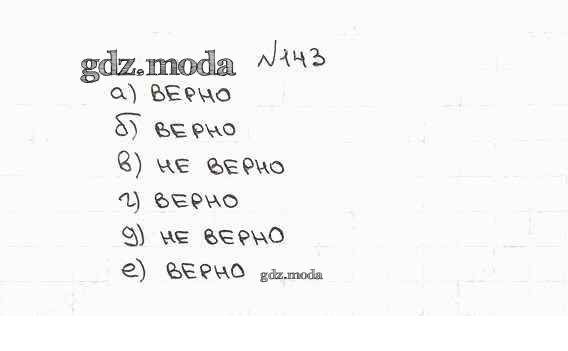 gdz.moda №143
а) ВЕРНО
б) ВЕРНО
в) НЕ ВЕРНО
г) ВЕРНО
д) НЕ ВЕРНО
е) ВЕРНО gdz.moda